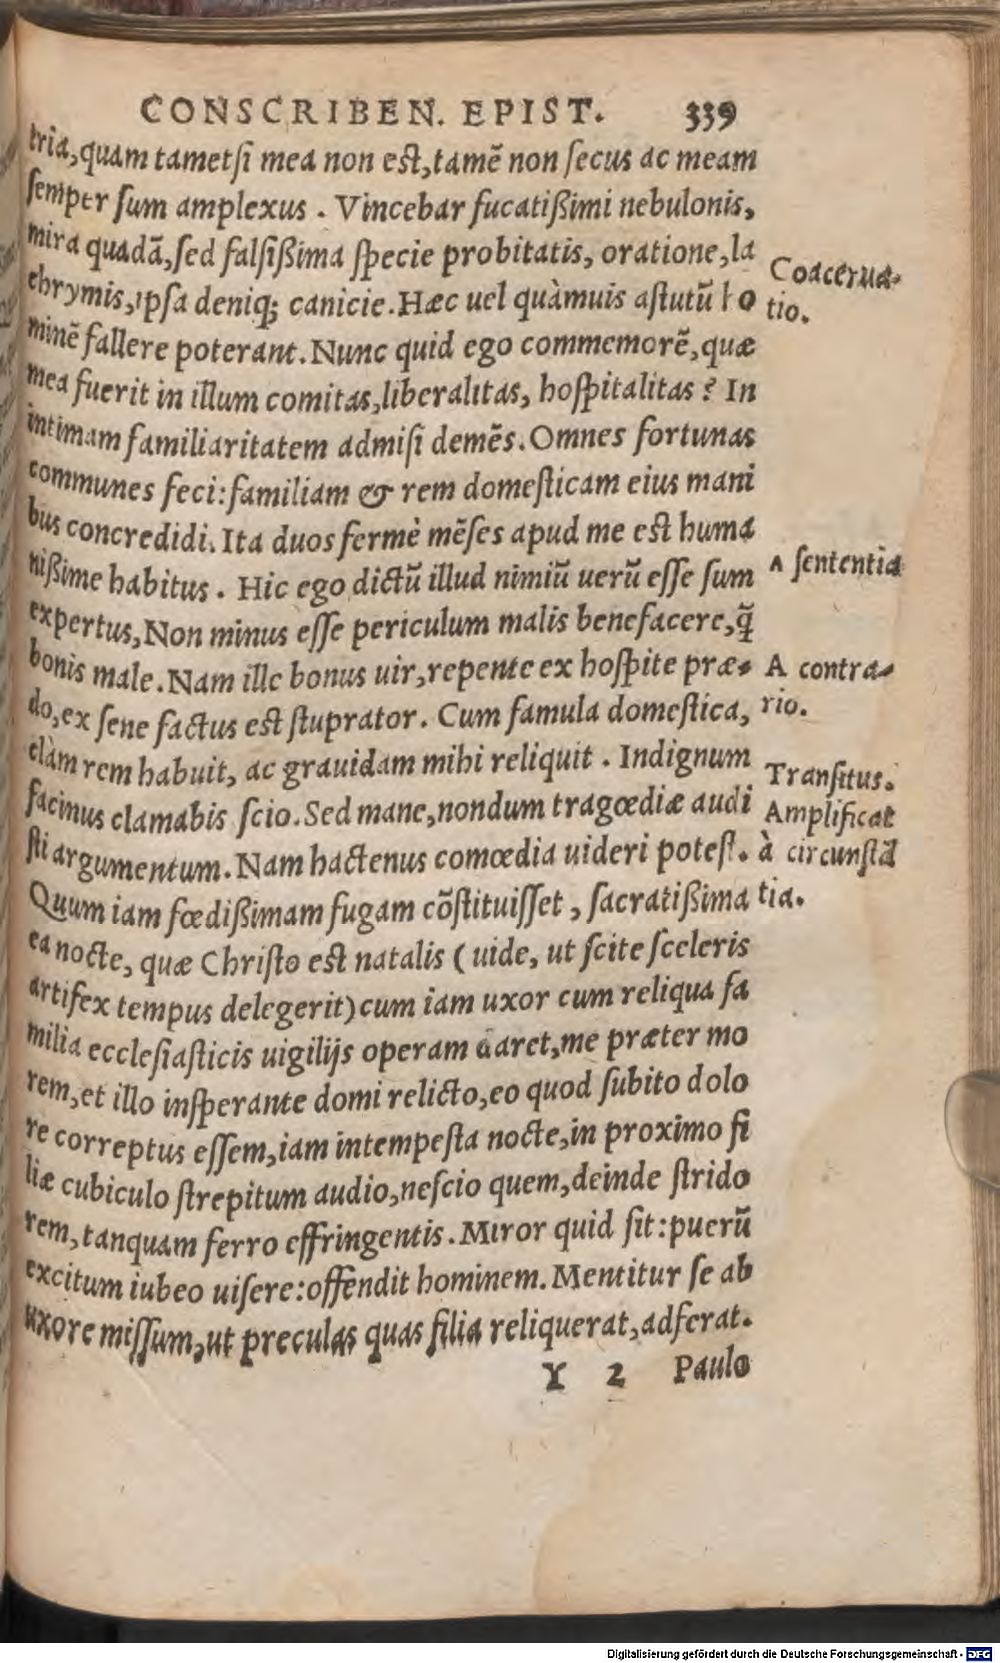 CONSCRIBEN. EPIST. 339
tria,quam tametſi mea non eſt,tamē non ſecus ac meam
ſemper ſum amplexus . Vincebar fucatißimi nebulonis,
mira quadā,ſed falſißima ſpecie probitatis, oratione,la
chrymis,ipſa deniq; canicie.Hæc uel quàmuis aſtutū ho
minē fallere poterant.Nunc quid ego commemorē,quæ
mea fuerit in illum comitas,liberalitas, hoſpitalitas ? In
intimam familiaritatem admiſi demēs.Omnes fortunas
communes feci:familiam & rem domeſticam eius mani
bus concredidi. Ita duos fermè mēſes apud me eſt huma
nißime habitus . Hic ego dictū illud nimiū uerū eſſe ſum
expertus,Non minus eſſe periculum malis benefacere,q̃
bonis male.Nam ille bonus uir,repente ex hoſpite præ-
do,ex ſene factus eſt ſtuprator. Cum famula domeſtica,
clàm rem habuit, ac grauidam mihi reliquit . Indignum
facinus clamabis ſcio.Sed mane,nondum tragœdiæ audi
ſti argumentum.Nam hactenus comœdia uideri poteſt.
Quum iam fœdißimam fugam cōſtituiſſet , ſacratißima
ea nocte, quæ Chriſto eſt natalis ( uide, ut ſcite ſceleris
artifex tempus delegerit)cum iam uxor cum reliqua fa
milia eccleſiaſticis uigilijs operam daret,me præter mo
rem,et illo inſperante domi relicto,eo quod ſubito dolo
re correptus eſſem,iam intempeſta nocte,in proximo fi
liæ cubiculo ſtrepitum audio,neſcio quem,deinde ſtrido
rem,tanquam ferro effringentis.Miror quid ſit:puerū
excitum iubeo uiſere:offendit hominem.Mentitur ſe ab
uxore miſſum,ut preculas quas filia reliquerat,adferat.
Y 2 Paulo
Coacerua-
tio.
A ſententia
A contra-
rio.
Tranſitus.
Amplificat
à circunſtā
tia.
Digitalisierung gefördert durch die Deutsche Forschungsgemeinschaft - DFG